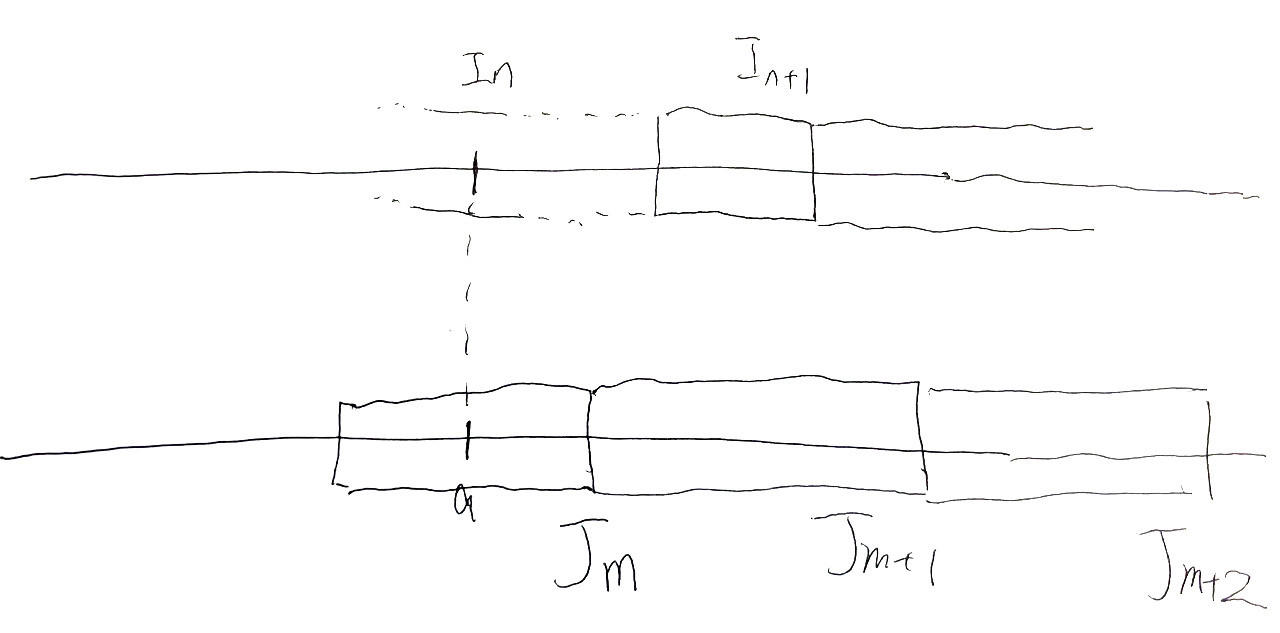 In In+1
a
Jm Jm+1 Jm+2